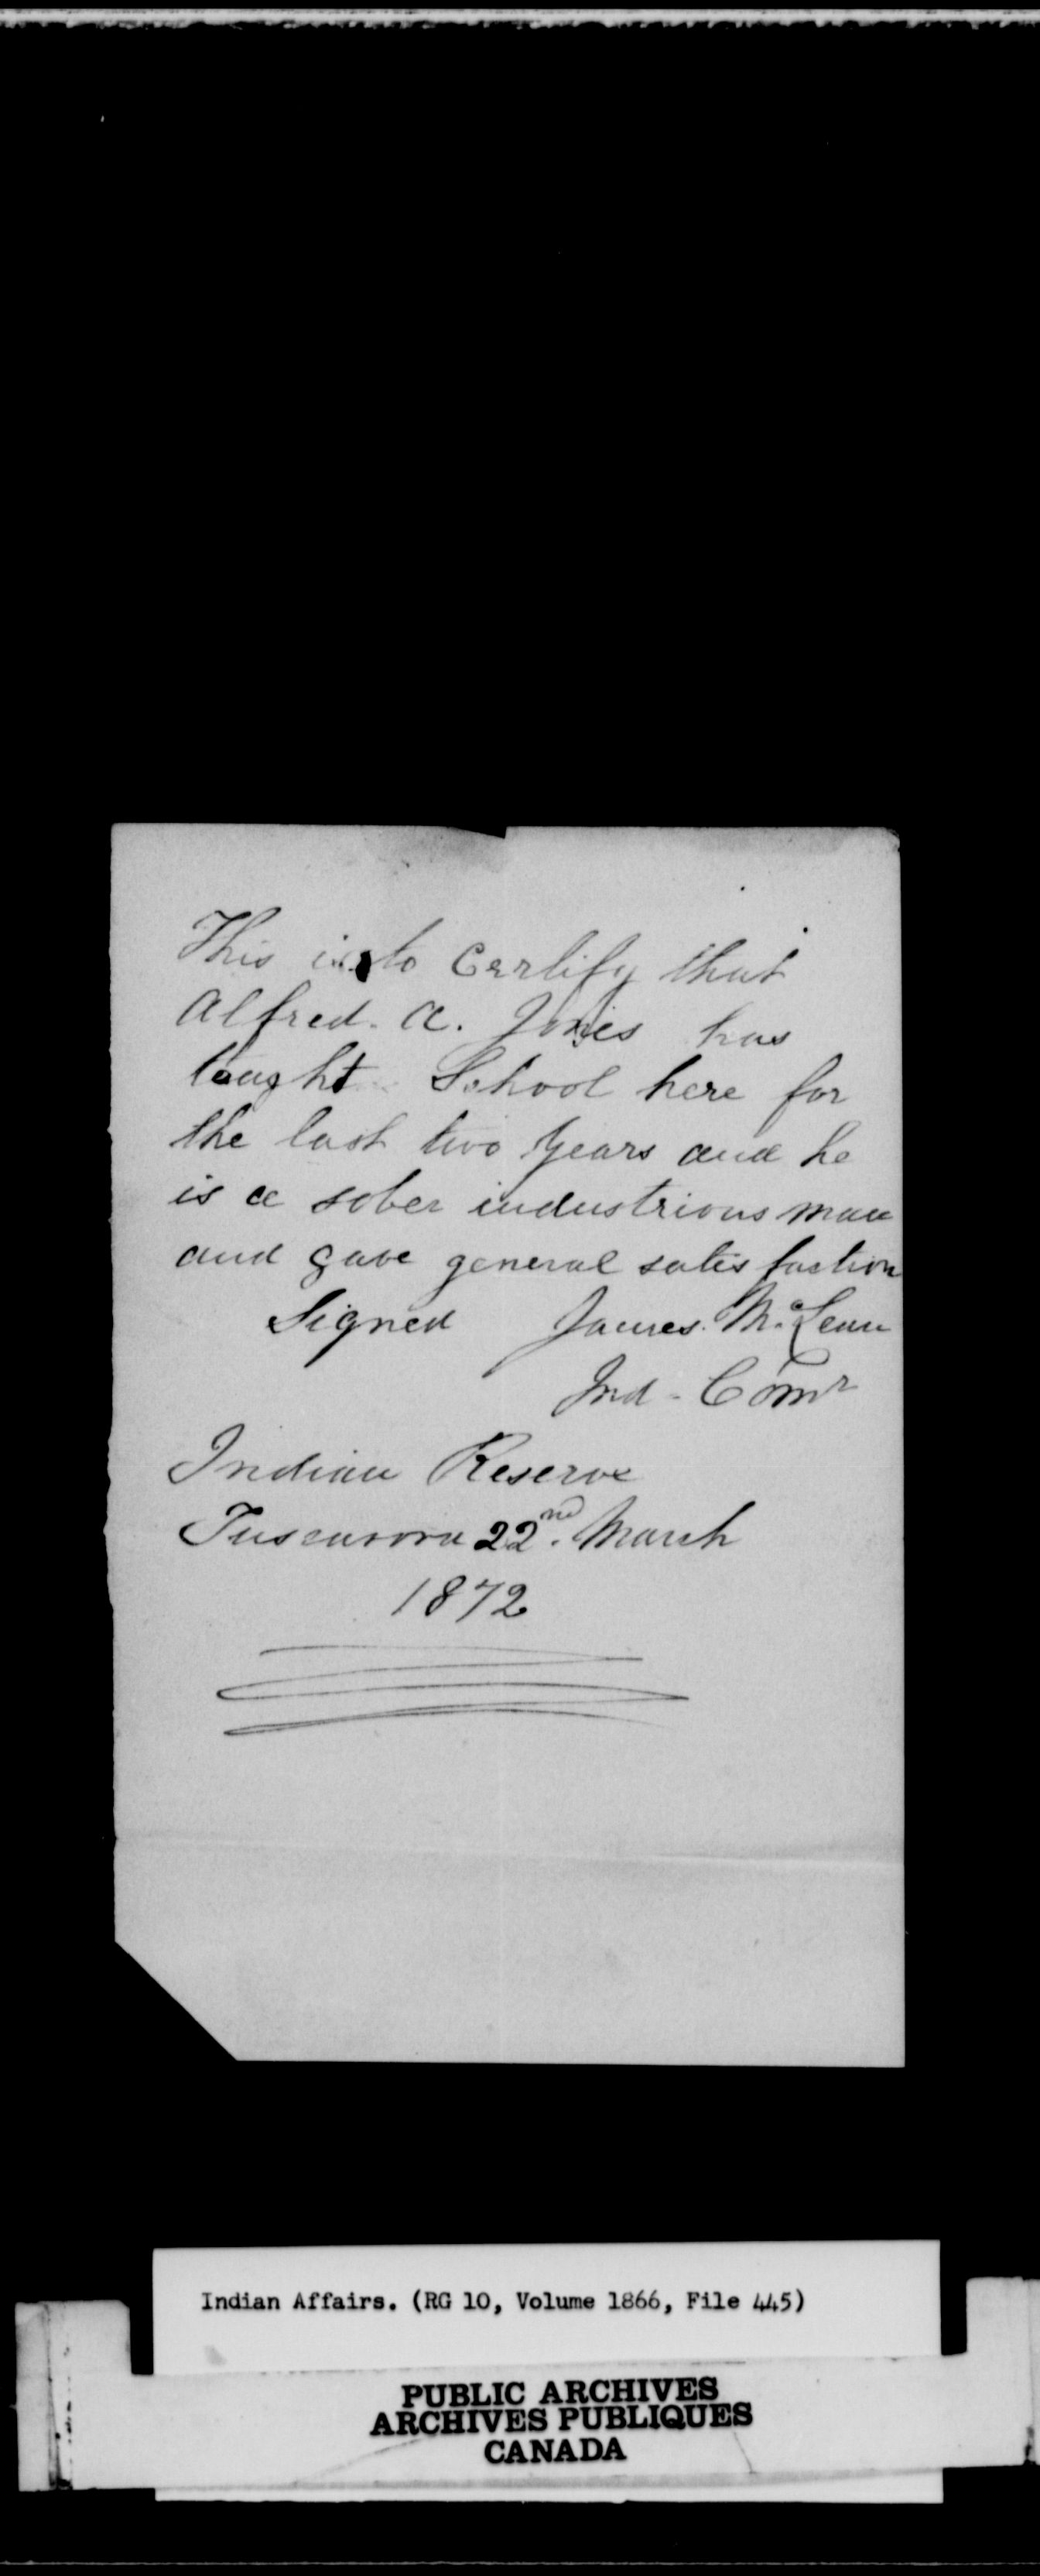 This is to Certify that
Alfred. A. Jones has
taught School here for
the last two years and he
is a sober industrious man
and gave general satisfaction
Signed James. McLean
Ind - Comr
Indian Reserve
Tuscarora 22nd. March
1872
Indian Affairs. (RG 10, Volume 1866, File 445)
PUBLIC ARCHIVES
ARCHIVES PUBLIQUES
CANADA